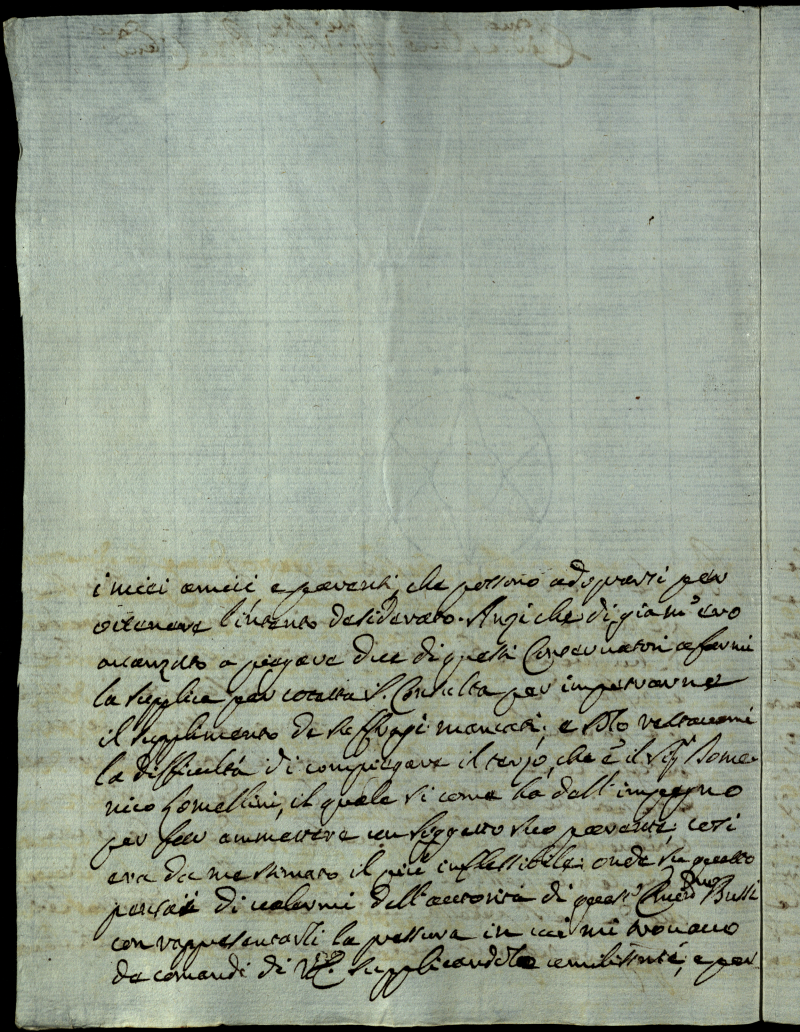 i miei amici e parenti, che possono adoprarsi per
ottenere l'intento desiderato. Anzi che di già m'ero
avanzato a piegare due di questi Conservatori a farmi
la supplica per cotesta S. Consulta per impetrarne
il supplimento de suffragi mancati; e solo restavami
la difficultà di compiegare il terzo, che è il Sigr Dome-
nico Lomellini, il quale si come ha dall'impegno
per far ammettere un suggetto suo parente, così
era da me stimato il più inflessibile; onde su questo
pensai di valermi dell'autorità di questo Bussi
con rappresentarli la pressura in cui mi trovavo
da comandi di supplicandolo umilisste, e per